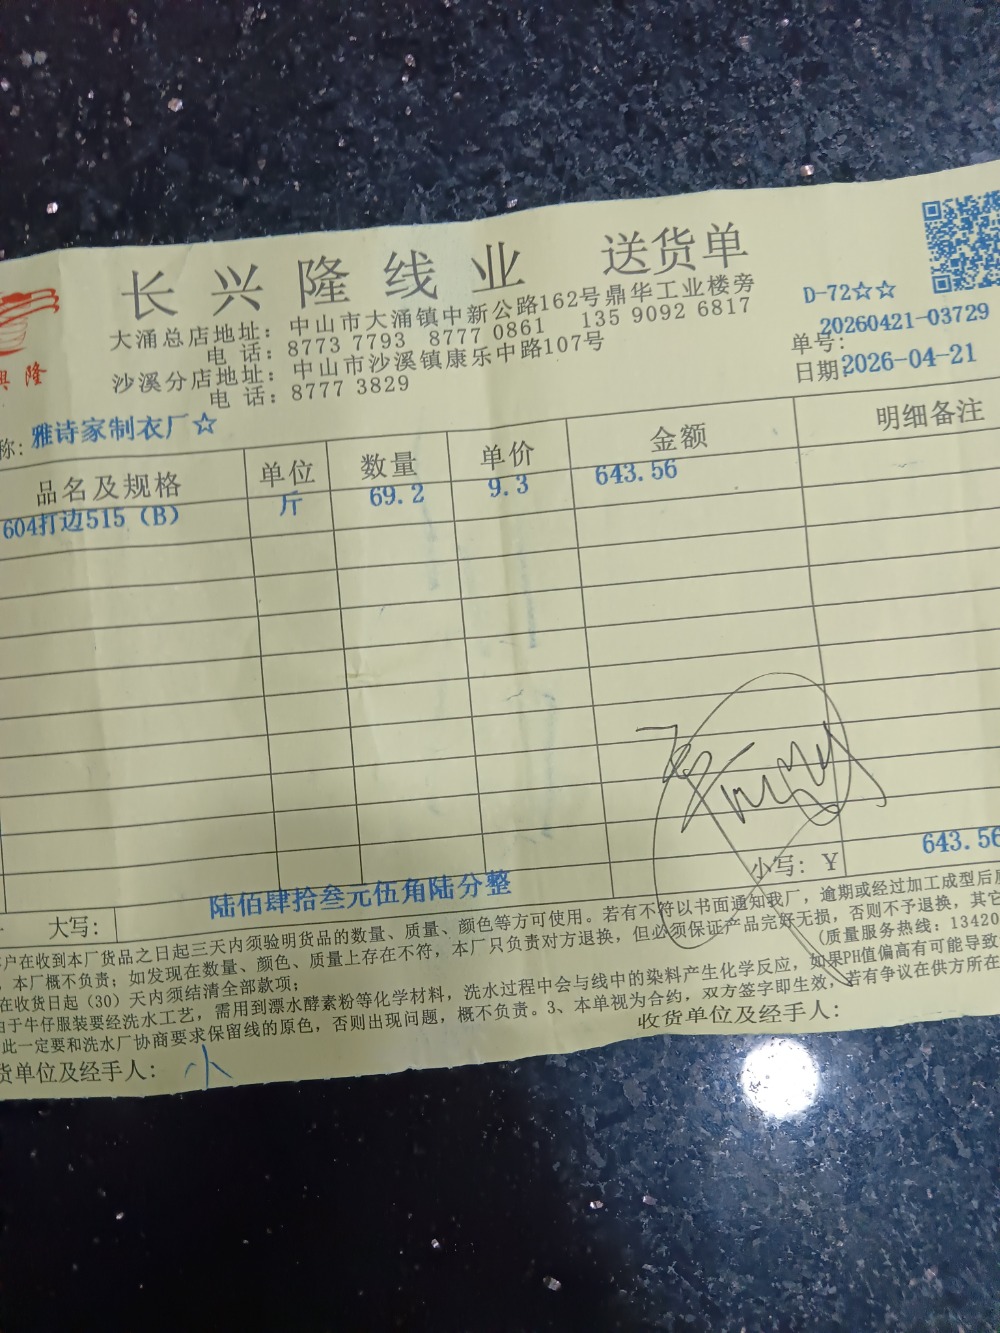 长兴隆线业 送货单
大涌总店地址：中山市大涌镇中新公路162号鼎华工业楼旁
电话：8773 7793 8777 0861 135 9092 6817
沙溪分店地址：中山市沙溪镇康乐中路107号
电话：8777 3829
興隆
D-72☆☆
单号：20260421-03729
日期：2026-04-21
称：雅诗家制衣厂☆
品名及规格 单位 数量 单价 金额 明细备注
604打边515（B） 斤 69.2 9.3 643.56
小写：￥ 643.56
大写：陆佰肆拾叁元伍角陆分整
户在收到本厂货品之日起三天内须验明货品的数量、质量、颜色等方可使用。若有不符以书面通知我厂，逾期或经过加工成型后
，本厂概不负责；如发现在数量、颜色、质量上存在不符，本厂只负责对方退换，但必须保证产品完好无损，否则不予退换，其它
在收货日起（30）天内须结清全部款项； （质量服务热线：13420
由于牛仔服装要经洗水工艺，需用到漂水酵素粉等化学材料，洗水过程中会与线中的染料产生化学反应，如果PH值偏高有可能导致
此一定要和洗水厂协商要求保留线的原色，否则出现问题，概不负责。3、本单视为合约，双方签字即生效，若有争议在供方所在
货单位及经手人：小 收货单位及经手人：